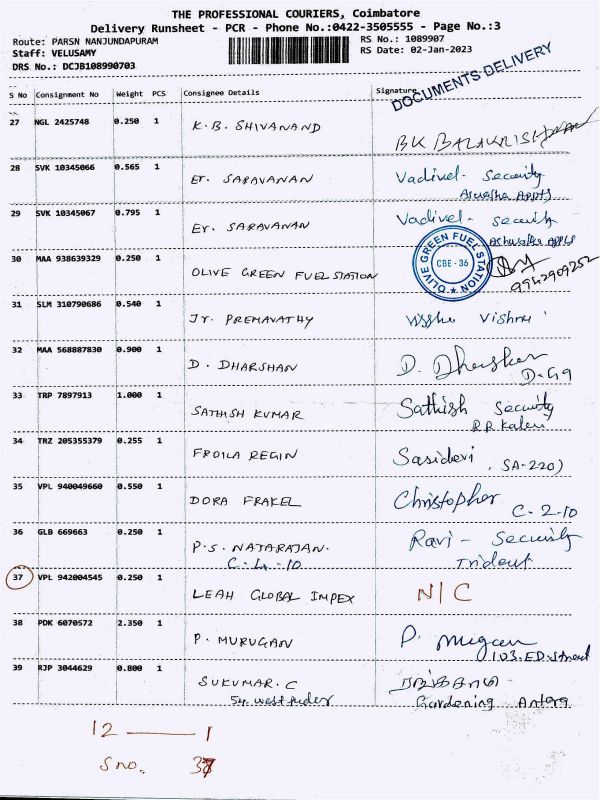 THE PROFESSIONAL COURIERS, Coimbatore
Delivery Runsheet - PCR - Phone No.:0422-3505555 - Page No.:3
Route: PARSN NANJUNDAPURAM
RS No.: 1089907
Staff: VELUSAMY
RS Date: 02-Jan-2023
DRS No.: DCJB108990703
DOCUMENTS DELIVERY
S No Consignment No Weight PCS Consignee Details Signature
27 NGL 2425748 0.250 1 K.B. SHIVANAND BK
28 SVK 10345066 0.565 1 Er. SARAVANAN Vadivel - Security
29 SVK 10345067 0.795 1 Er. SARAVANAN Vadivel - Security
30 MAA 938639329 0.250 1 OLIVE GREEN FUEL STATION
OLIVE GREEN FUEL STATION
CBE - 36
9942909252
31 SLM 310790686 0.540 1 Jr. PREMAVATHY Vishnu
32 MAA 568887830 0.900 1 D. DHARSHAN D.
33 TRP 7897913 1.000 1 SATHISH KUMAR Sathish Security
34 TRZ 205355379 0.255 1 FROILA REGIN Sasidevi, SA-220)
35 VPL 940049660 0.550 1 DORA FRAKEL Christopher
C-2-10
36 GLB 669663 0.250 1 P.S. NATARAJAN. Ravi - Security
C-4-10 Trident
37 VPL 942004545 0.250 1 LEAH GLOBAL IMPEX N/C
38 PDK 6070572 2.350 1 P. MURUGAN P.
103, ED. Street
39 RJP 3044629 0.800 1 SUKUMAR. C
Gardening
12 — 1
S no. 37